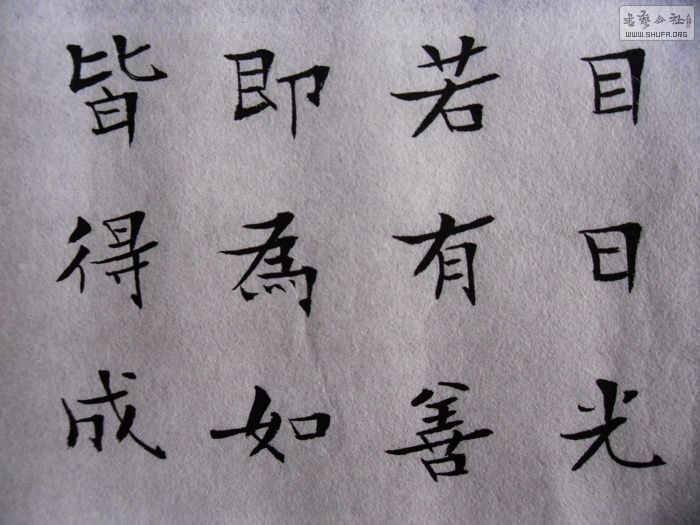 目日光
若有善
即為如
皆得成
书艺公社
WWW.SHUFA.ORG